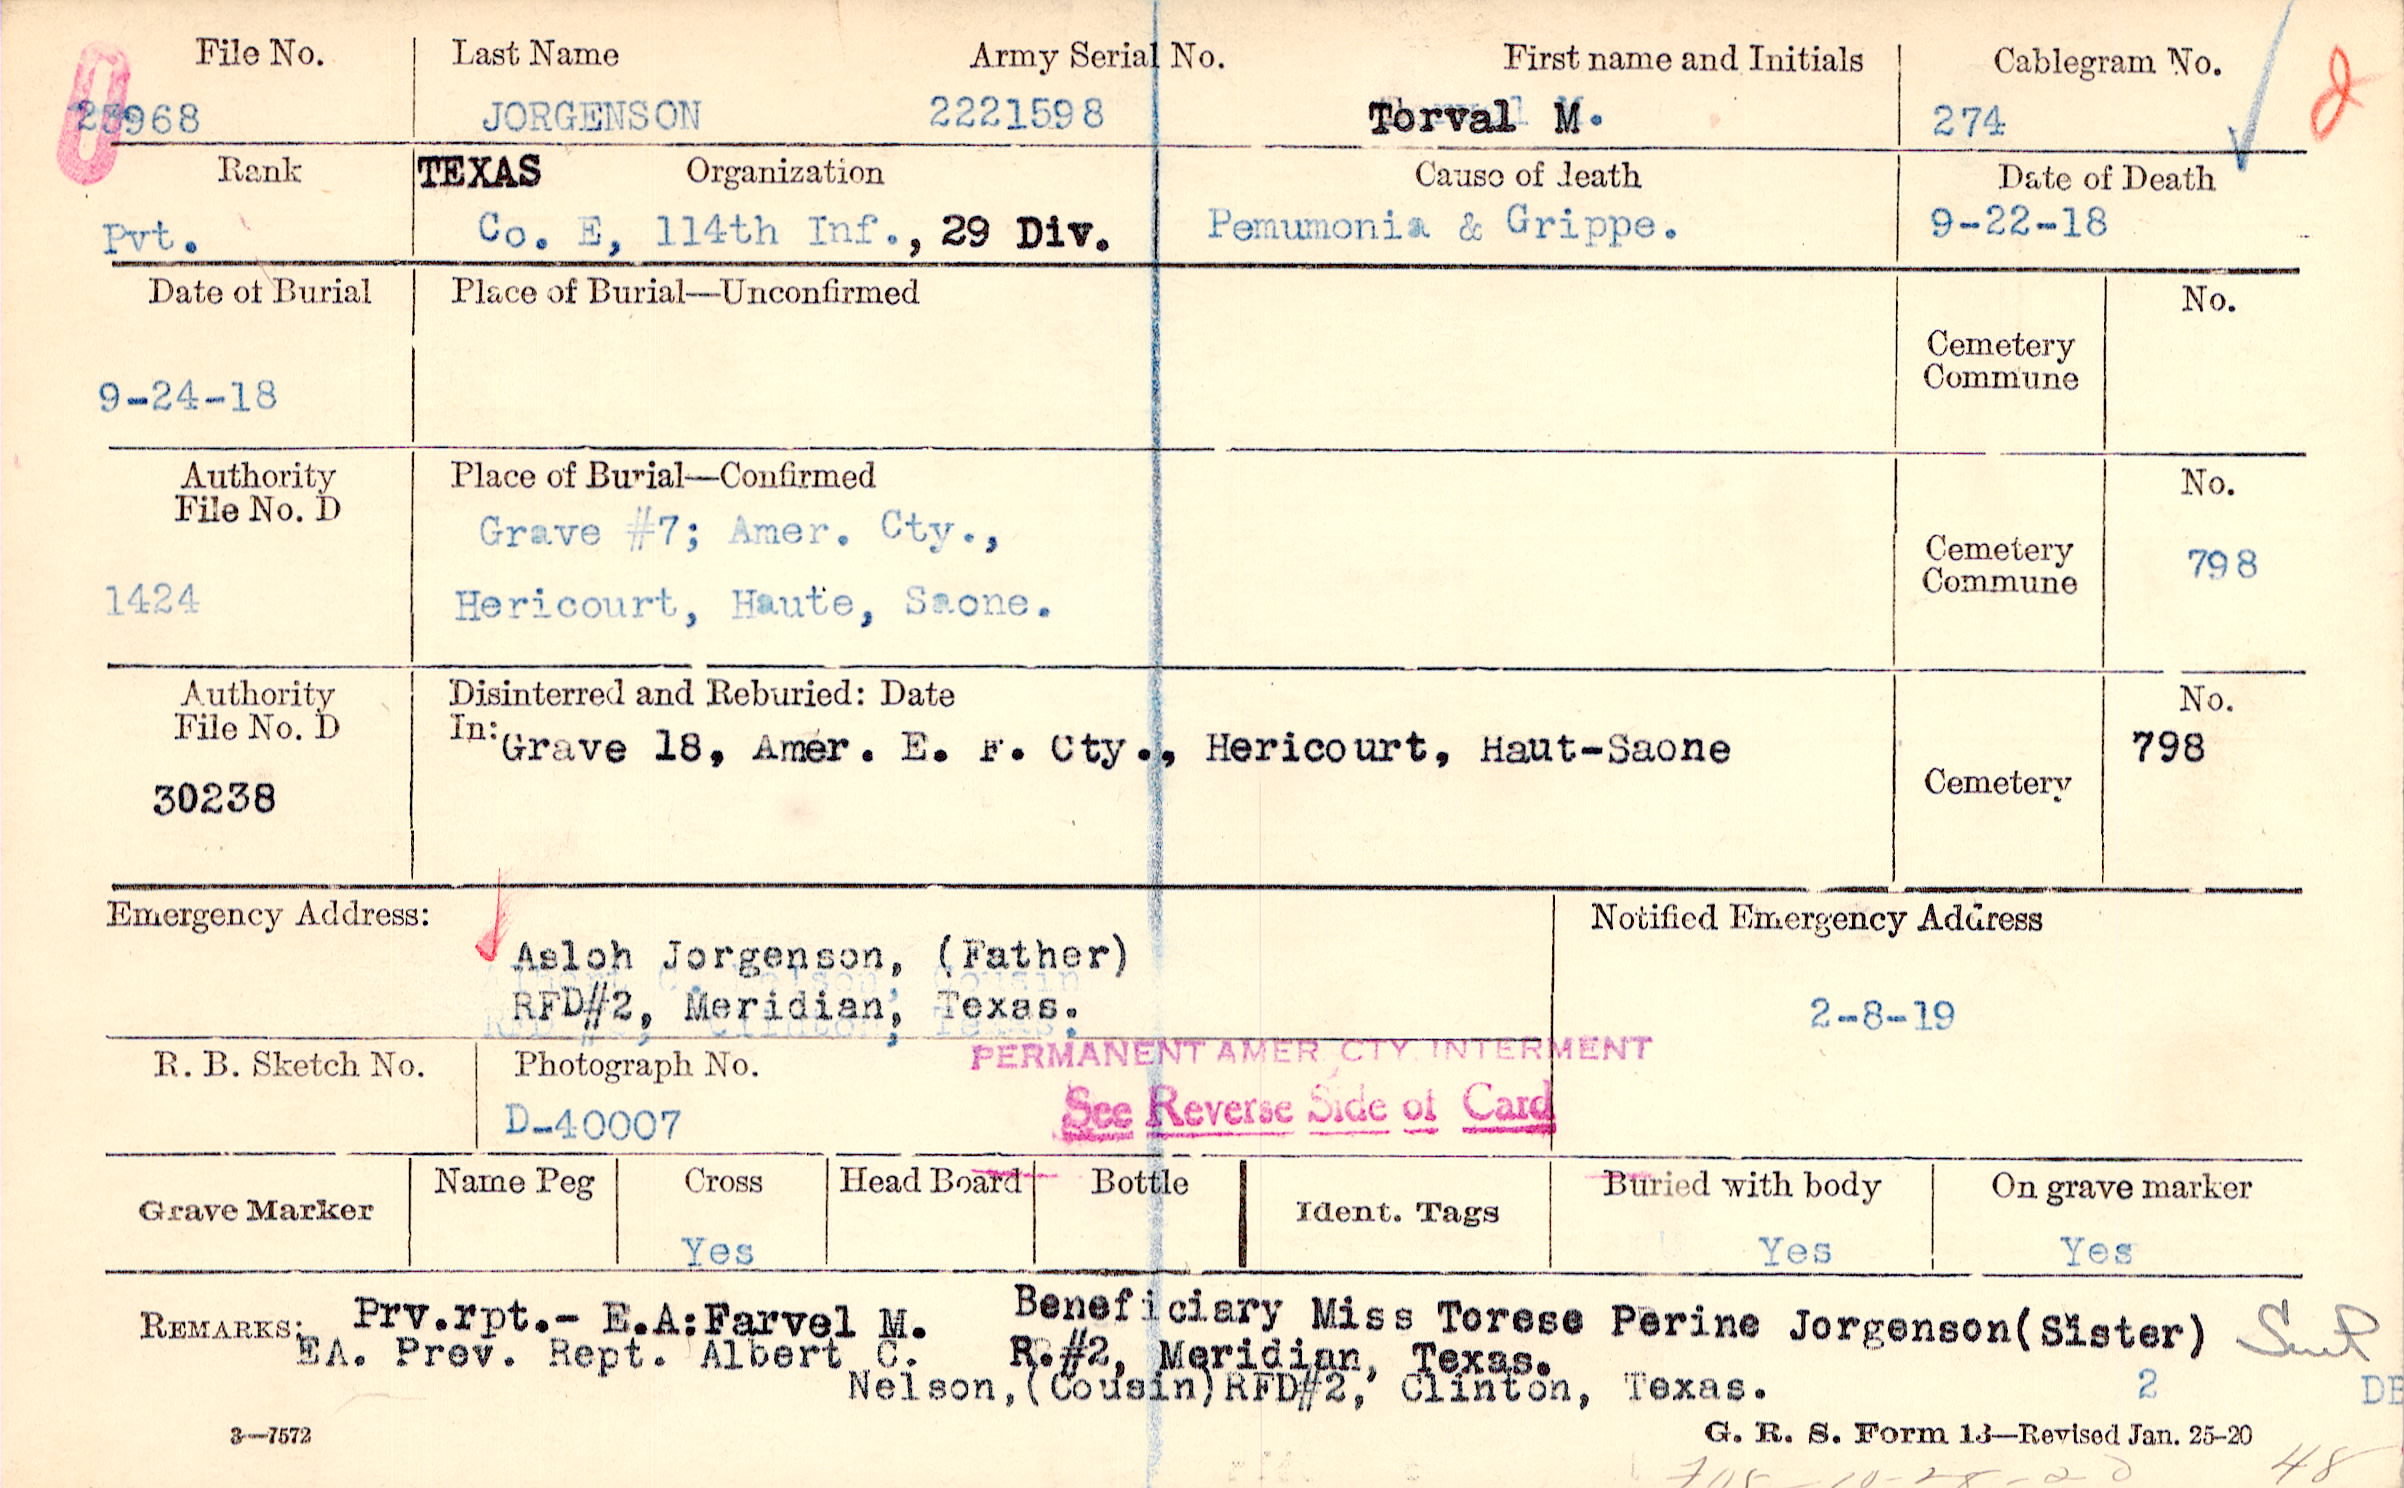 File No. Last Name Army Serial No. First name and Initials Cablegram No.
23968 JORGENSON 2221598 Torval M. 274
Rank TEXAS Organization Cause of death Date of Death
Pvt. Co. E, 114th Inf., 29 Div. Pemumonia & Grippe. 9-22-18
Date of Burial Place of Burial—Unconfirmed No.
Cemetery
Commune
9-24-18
Authority Place of Burial—Confirmed No.
File No. D
Grave #7; Amer. Cty.,
Cemetery
Commune 798
1424 Hericourt, Haute, Saone.
Authority Disinterred and Reburied: Date No.
File No. D In: Grave 18, Amer. E. F. Cty., Hericourt, Haut-Saone 798
30238 Cemetery
Emergency Address: Notified Emergency Address
Asloh Jorgenson, (Father)
RFD#2, Meridian, Texas. 2-8-19
R. B. Sketch No. Photograph No. PERMANENT AMER CTY. INTERMENT
D-40007 See Reverse Side of Card
Grave Marker Name Peg Cross Head Board Bottle Ident. Tags Buried with body On grave marker
Yes Yes Yes
REMARKS: Prv.rpt.- E.A:Farvel M. Beneficiary Miss Torese Perine Jorgenson(Sister)
EA. Prev. Rept. Albert C. R.#2, Meridian, Texas.
Nelson,(Cousin)RFD#2, Clinton, Texas. 2
3—7572 G. R. S. Form 13—Revised Jan. 25-20
48